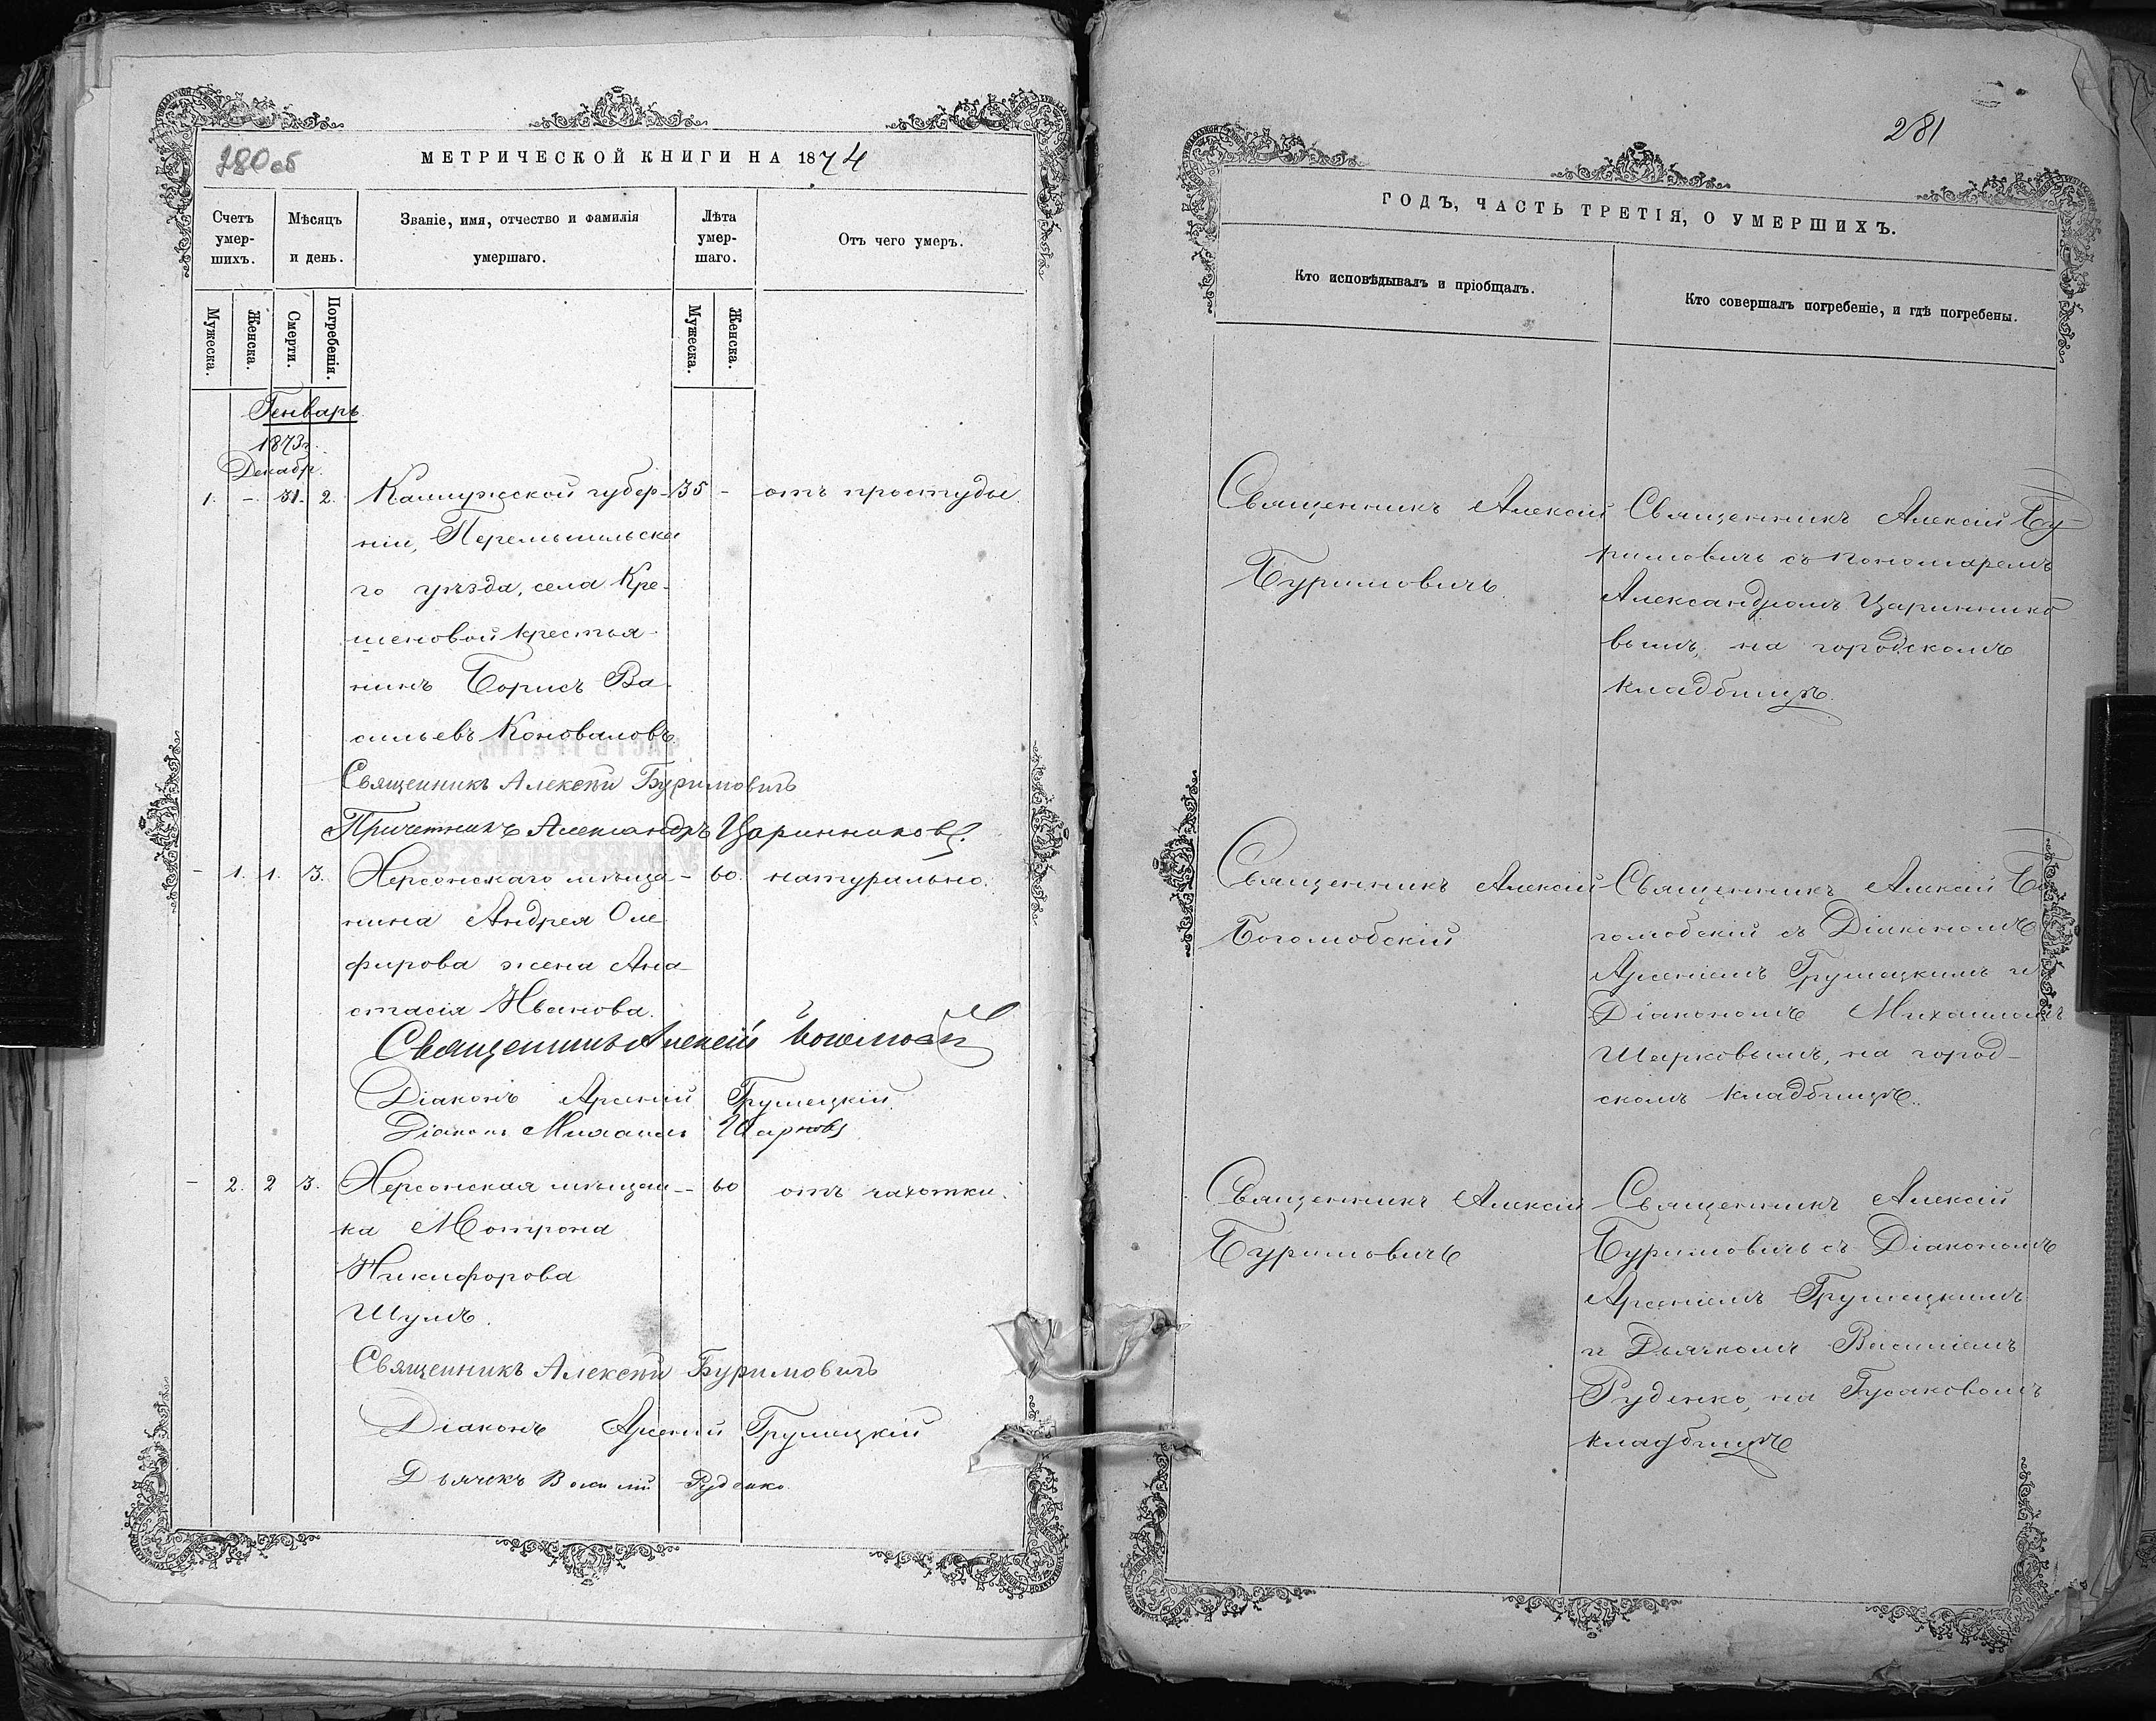 280об
МЕТРИЧЕСКОЙ КНИГИ НА 1874
Счетъ умер-шихъ.
Мѣсяцъ и день.
Званіе, имя, отчество и фамилія умершаго.
Лѣта умер-шаго.
Отъ чего умеръ.
Мужеска.
Женска.
Смерти.
Погребенія.
Мужеска.
Женска.
Генварь
1873г.
Декабр.
1. - 31. 2. Калужской губер- 35 - отъ простуды.
ніи, Перемышльска
го уѣзда, села Кре-
шеновой крестья-
нинъ Борисъ Ва-
сильевъ Коноваловъ
Священникъ Алексѣй Буримовичъ
Причетникъ Александръ Царинниковъ.
- 1. 1. 3. Херсонскаго мѣща- - 60. натурально.
нина Андрея Оле
фирова жена Ана-
стасія Иванова.
Священникъ Алексій
Діаконъ Арсеній Грушецкій.
Діаконъ Михаилъ Шарковъ
- 2. 2 3. Херсонская мѣщан- - 60 отъ чахотки.
ка Мотрона
Никифорова
Шумъ.
Священникъ Алексѣй Буримовичъ
Діаконъ Арсеній Грушецкій
Дьячекъ Василій Руденко
281
ГОДЪ, ЧАСТЬ ТРЕТІЯ, О УМЕРШИХЪ.
Кто исповѣдывалъ и пріобщалъ.
Кто совершалъ погребеніе, и гдѣ погребены.
Священникъ Алексій
Буримовичъ.
Священникъ Алексій Бу-
римовичъ съ пономаремъ
Александромъ Царинико
вымъ, на городскомъ
кладбищѣ.
Священникъ Алексій
Боголюбскій
Священникъ Алексій Бо
голюбскій съ Діакономъ
Арсеніемъ Грушецкимъ и
Діакономъ Михаиломъ
Шарковымъ, на город-
скомъ кладбищѣ.
Священникъ Алексій
Буримовичъ
Священникъ Алексій
Буримовичъ съ Діакономъ
Арсеніемъ Грушецкимъ
и Дьячкомъ Василіемъ
Руденко, на Гусаковомъ
кладбищѣ